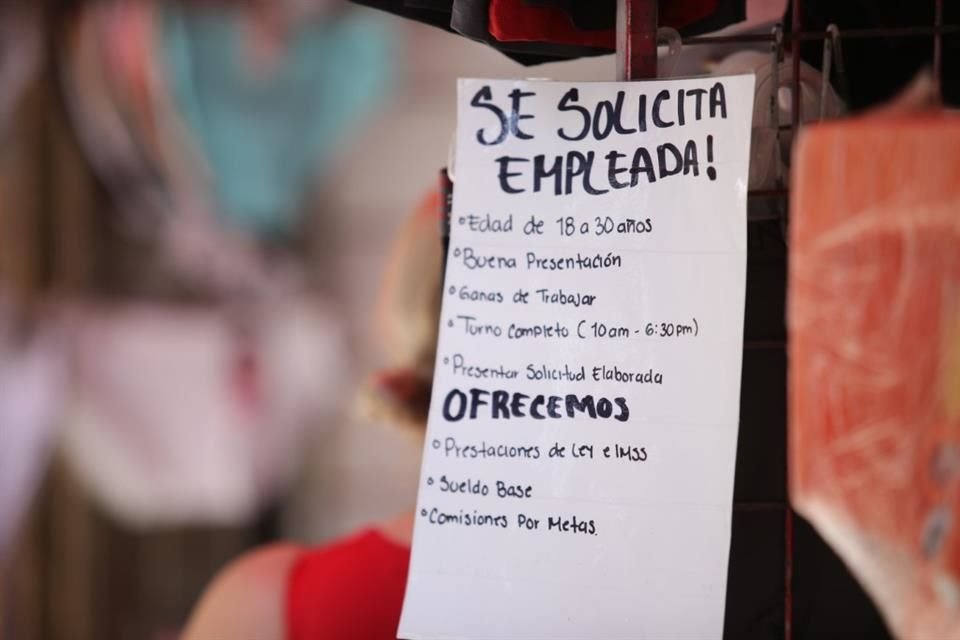 SE SOLICITA
EMPLEADA!
° Edad de 18 a 30 años
° Buena Presentación
° Ganas de Trabajar
° Turno Completo (10am - 6:30pm)
° Presentar Solicitud Elaborada
OFRECEMOS
° Prestaciones de Ley e IMSS
° Sueldo Base
° Comisiones Por Metas.